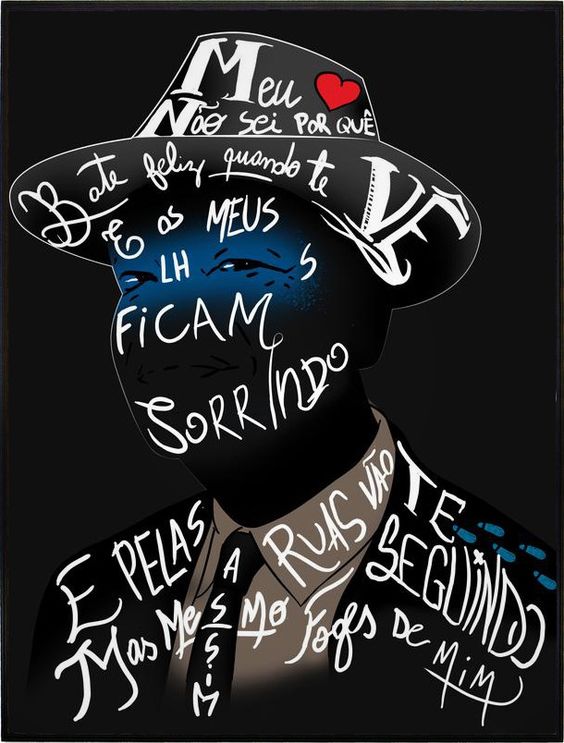 Meu
Não sei por quê
Bate feliz quando te
VÊ
E os MEUS
LH S
FiCAM
SORRINDO
E PELAS
RUAS VÃO
TE
SEGUINDO
Mas MesMO
ASSIM
Foges De MiM